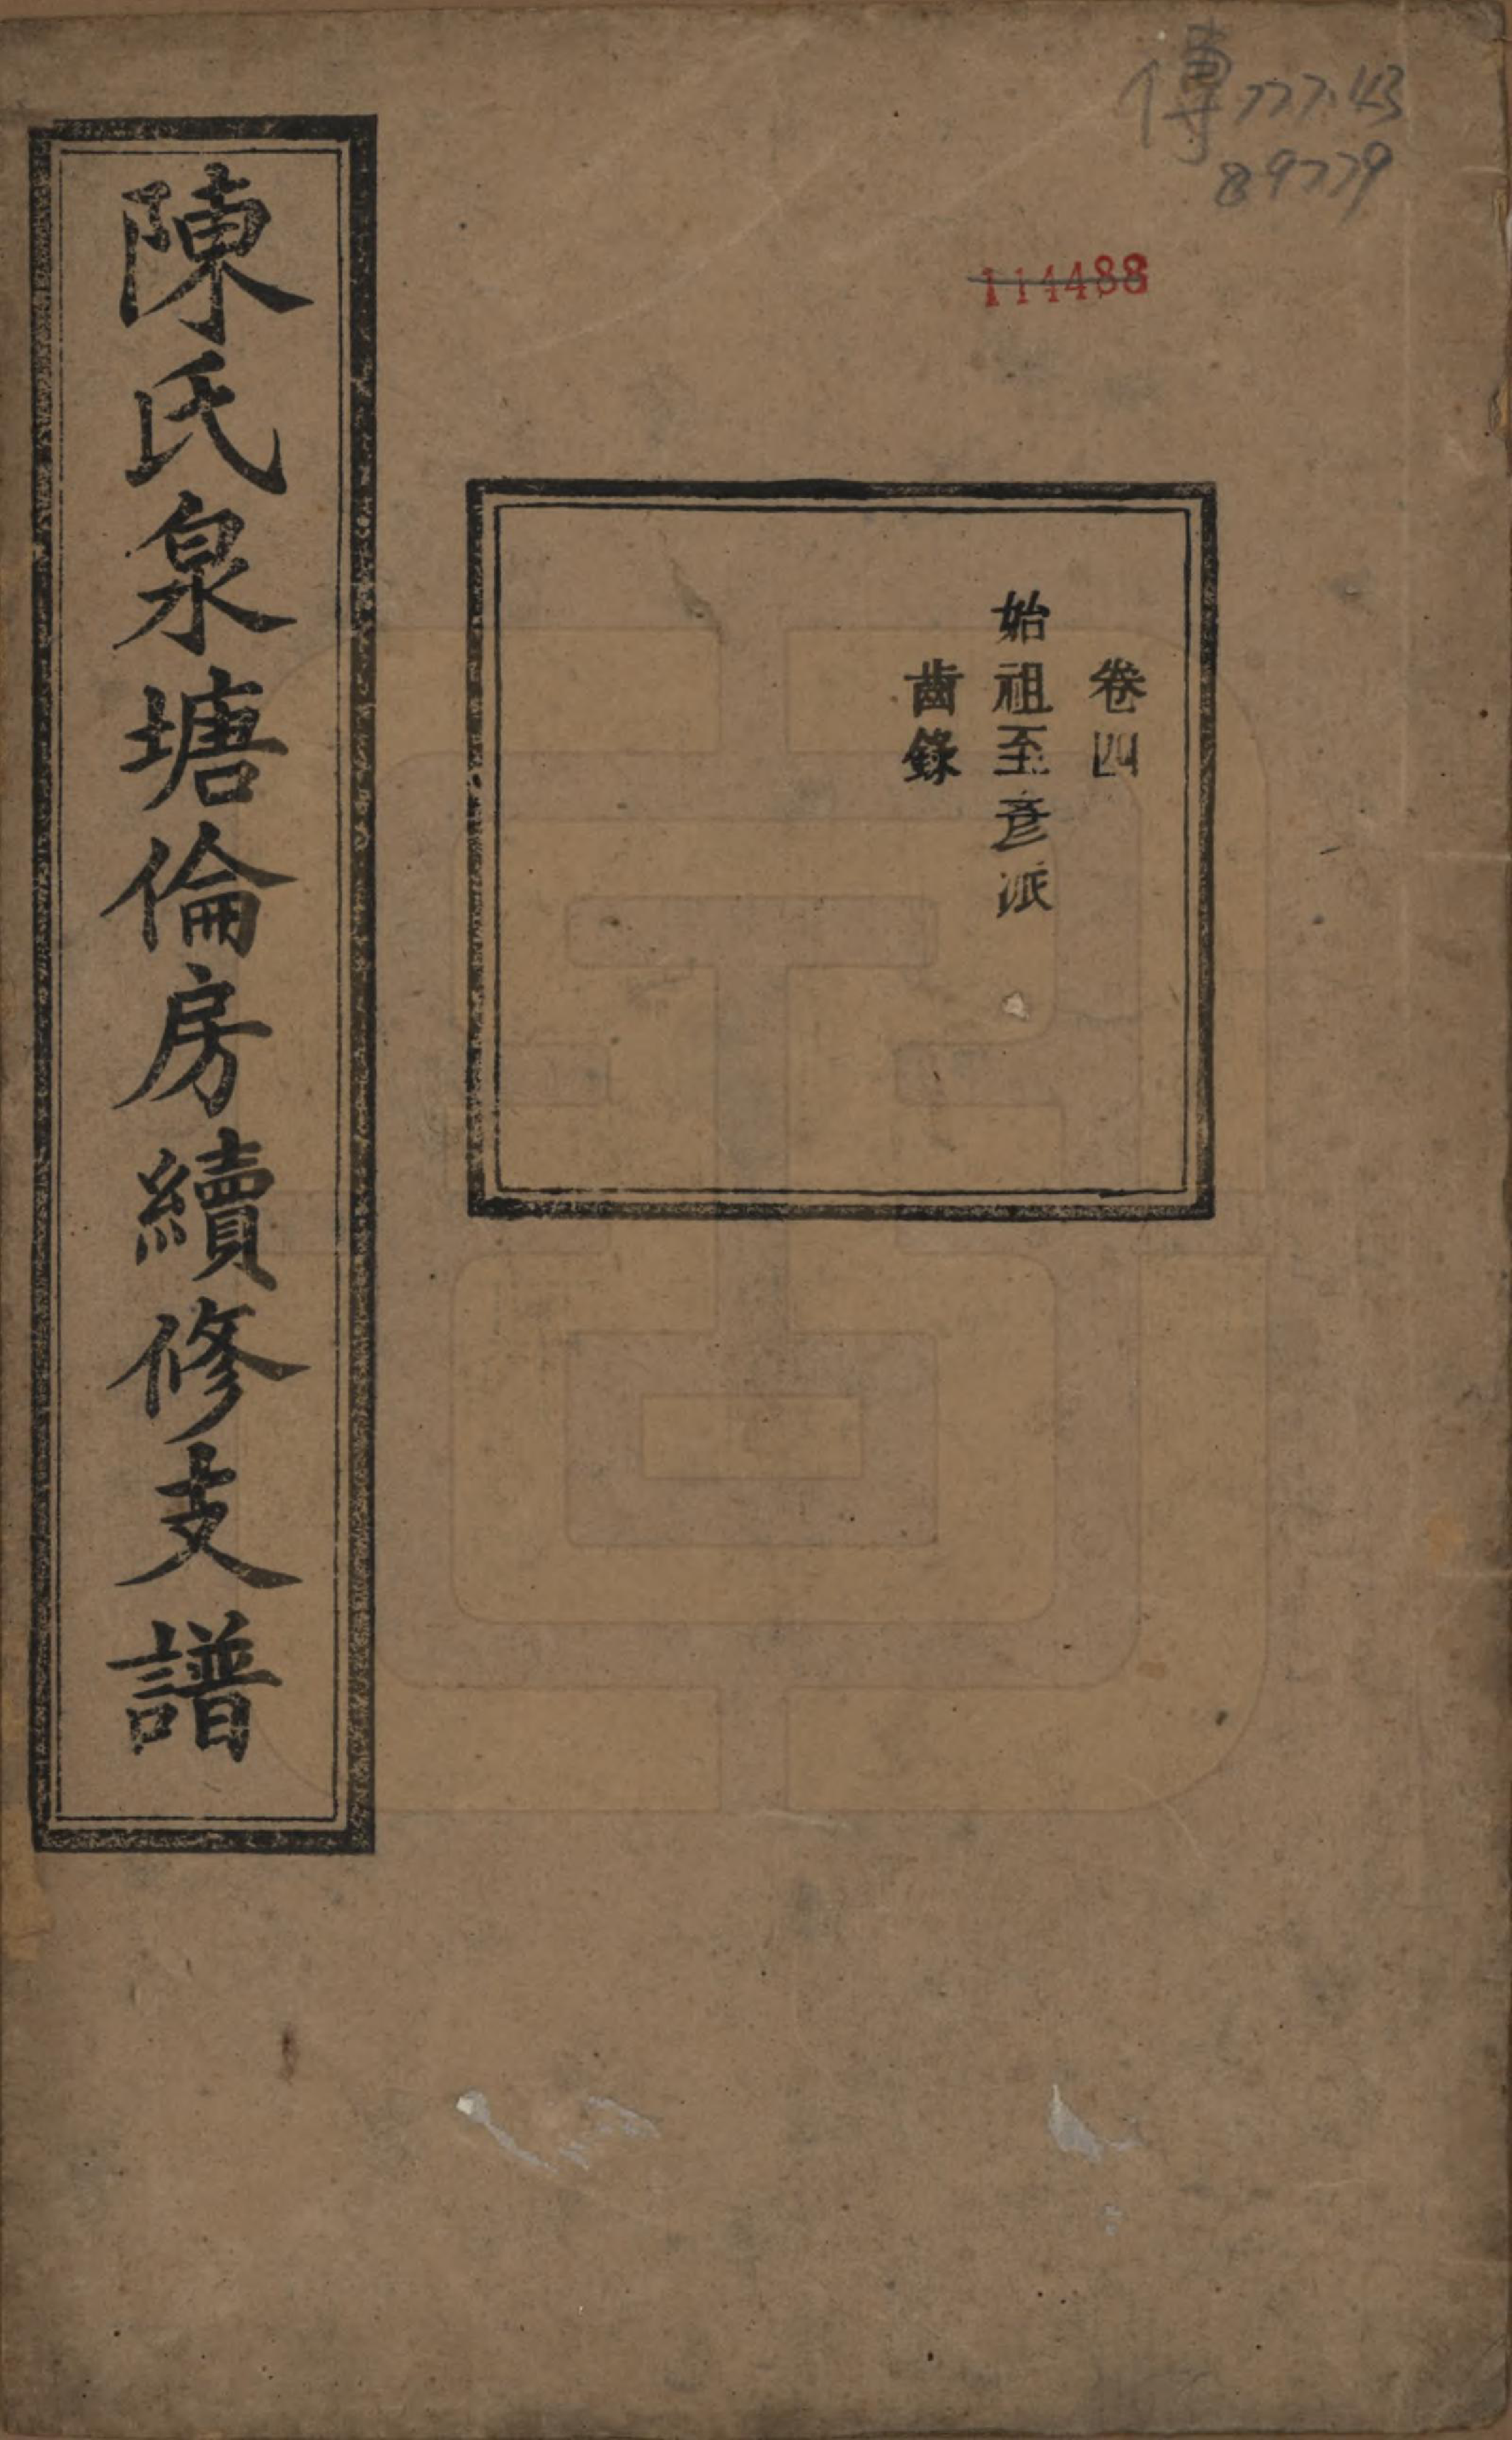 傳777.43
89779
114488
卷四
始祖至彥派
齒錄
陳氏泉塘倫房續修支譜